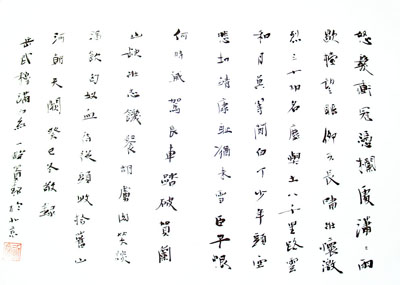 怒髮衝冠憑欄處潚〻雨
歇擡望眼仰天長嘯壯懷激
烈三十功名塵與土八千里路雲
和月莫等閒白了少年頭空
悲切靖康恥猶未雪臣子恨
何時滅駕長車踏破賀蘭
山缺壯志饑餐胡虜肉笑談
渴飲匈奴血待從頭收拾舊山
河朝天闕癸巳冬敬錄
岳武穆滿江紅一於北京